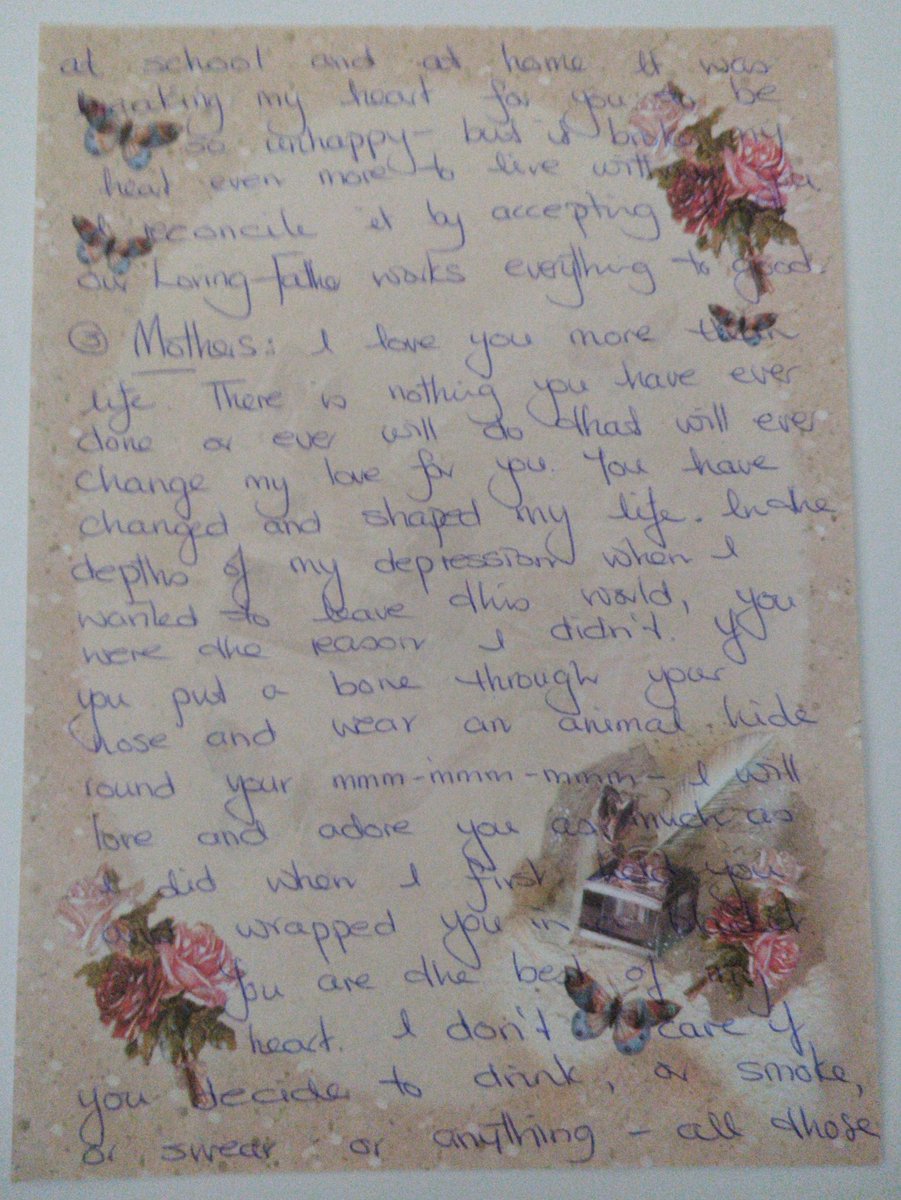 at school and at home. It was
breaking my heart for you to be
so unhappy - but it broke my
heat even more to live with
reconcile it by accepting
our Loving-Father works everything to good.
③ Mothers: I love you more than
life. There is nothing you have ever
done or ever will do that will ever
change my love for you. You have
changed and shaped my life. In the
depths of my depression when I
wanted to leave this world, you
were the reason I didn't. If
you put a bone through your
nose and wear an animal hide
round your mmm-mmm-mmm- I will
love and adore you as much as
I did when I first had you
and wrapped you in
You are the best of my
heart. I don't care if
you decide to drink, or smoke,
or swear or anything - all those